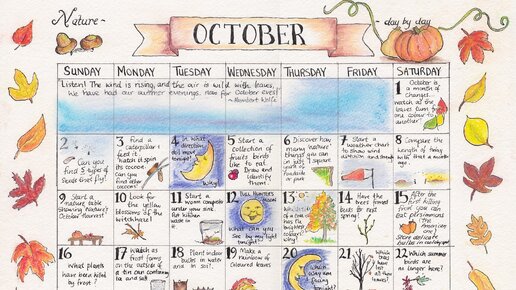 Nature~
OCTOBER
~day by day
SUNDAY MONDAY TUESDAY WEDNESDAY THURSDAY FRIDAY SATURDAY
Listen! The wind is rising, and the air is wild with leaves,
We have had our summer evenings, now for October eves!
~Humbert Wolfe
1 October
is a month
of
changes.
Watch as the
leaves turn
from one
colour to
another!
2
Can you
find 3 types of
seeds that fly?
3 Find a
caterpillar &
feed it.
Watch it spin
its cocoon.
Can you
find other
cocoons?
4 In what
direction
does the
moon move
tonight?
5 Start a
collection of
fruits birds
like to eat
Draw and
identify
them
6 Discover how
many
things
in just
1 square
7 Start a
weather chart
to show wind
8 Compare the
length of today
with that a month
ago.
9 Start a
nature table
showing Nature's
October flavours!
10 Look for
the yellow
blossoms of the
witchhazel
11 Start a
worm compost
under your sink
Put kitchen
waste in
it.
12 FULL HUNTERS
MOON
What can you
see by my light
tonight?
13
of a
has the
brightest
colour
14 Have the
trees formed
buds for next
spring?
15 After the
first killing
frost you can
eat persimmons
16
What plants
have been
killed by
frost?
17 Watch as
frost forms
on the outside of
a tin can
18 Plant indoor
bulbs in water
and in soil!
19 Make a
Rainbow of
Coloured leaves
20
Which
way am I
facing
21
trees
lost
all their
leaves?
22 Which summer
birds are
no longer here?